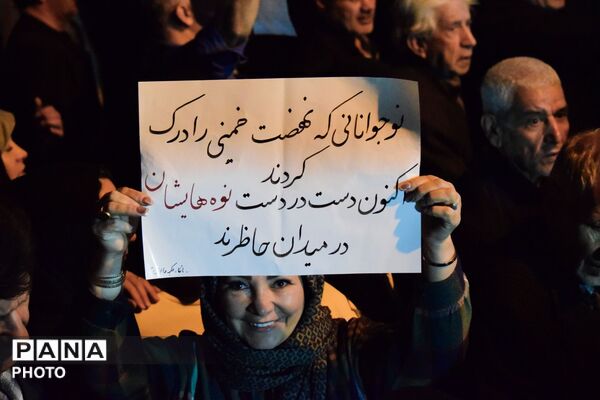 نوجوانانی که نهضت خمینی را درک
کردند
اکنون دست در دست نوه هایشان
در میدان حاظرند
PANA
PHOTO